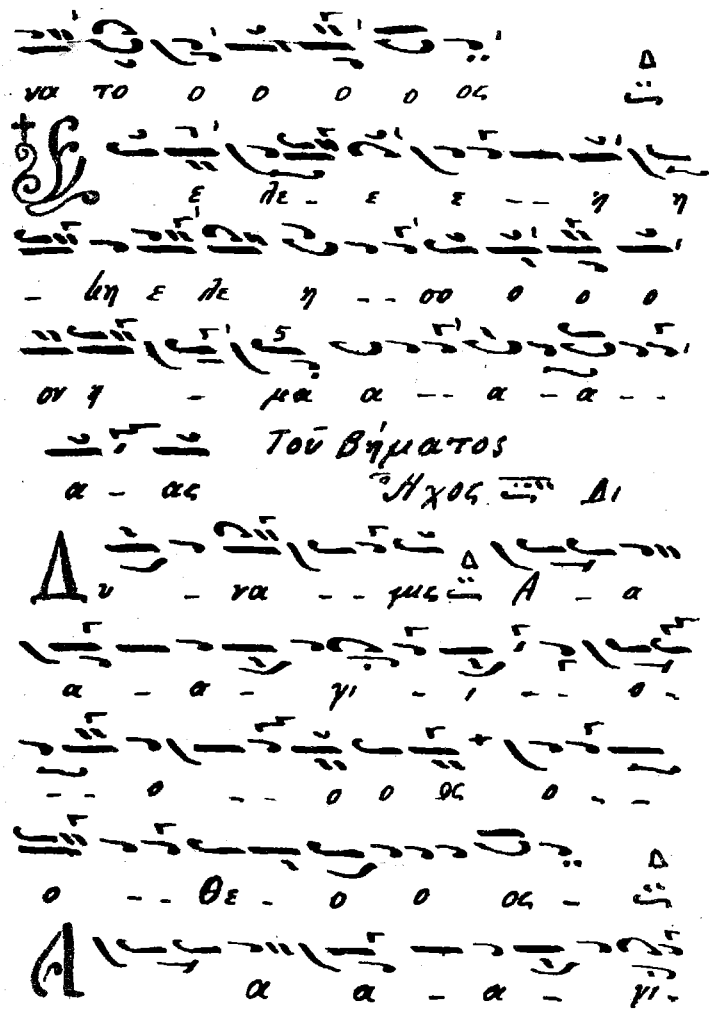 να το ο ο ο ο ος Δ
Ε ε λε - ε ε - - η η
- κη ε λε η - - σο ο ο ο
ον η - μα α - - α - α - -
α - ας Τοῦ Βήματος
Ἦχος Δι
Δυ - να - - μις Δ Α - α
α - α - γι - ι - - ο -
- - ο - - ο ο ος ο - -
ο - - Θε - ο ο ος - Δ
Α α α - α - γι -